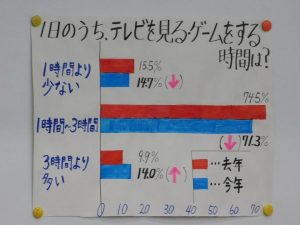 1日のうち、テレビを見る・ゲームをする
時間は?
1時間より
少ない
15.5%
14.7% (↓)
74.5%
1時間〜3時間
(↓) 71.3%
3時間より
多い
9.9%
14.0% (↑)
…去年
…今年
0 10 20 30 40 50 60 70